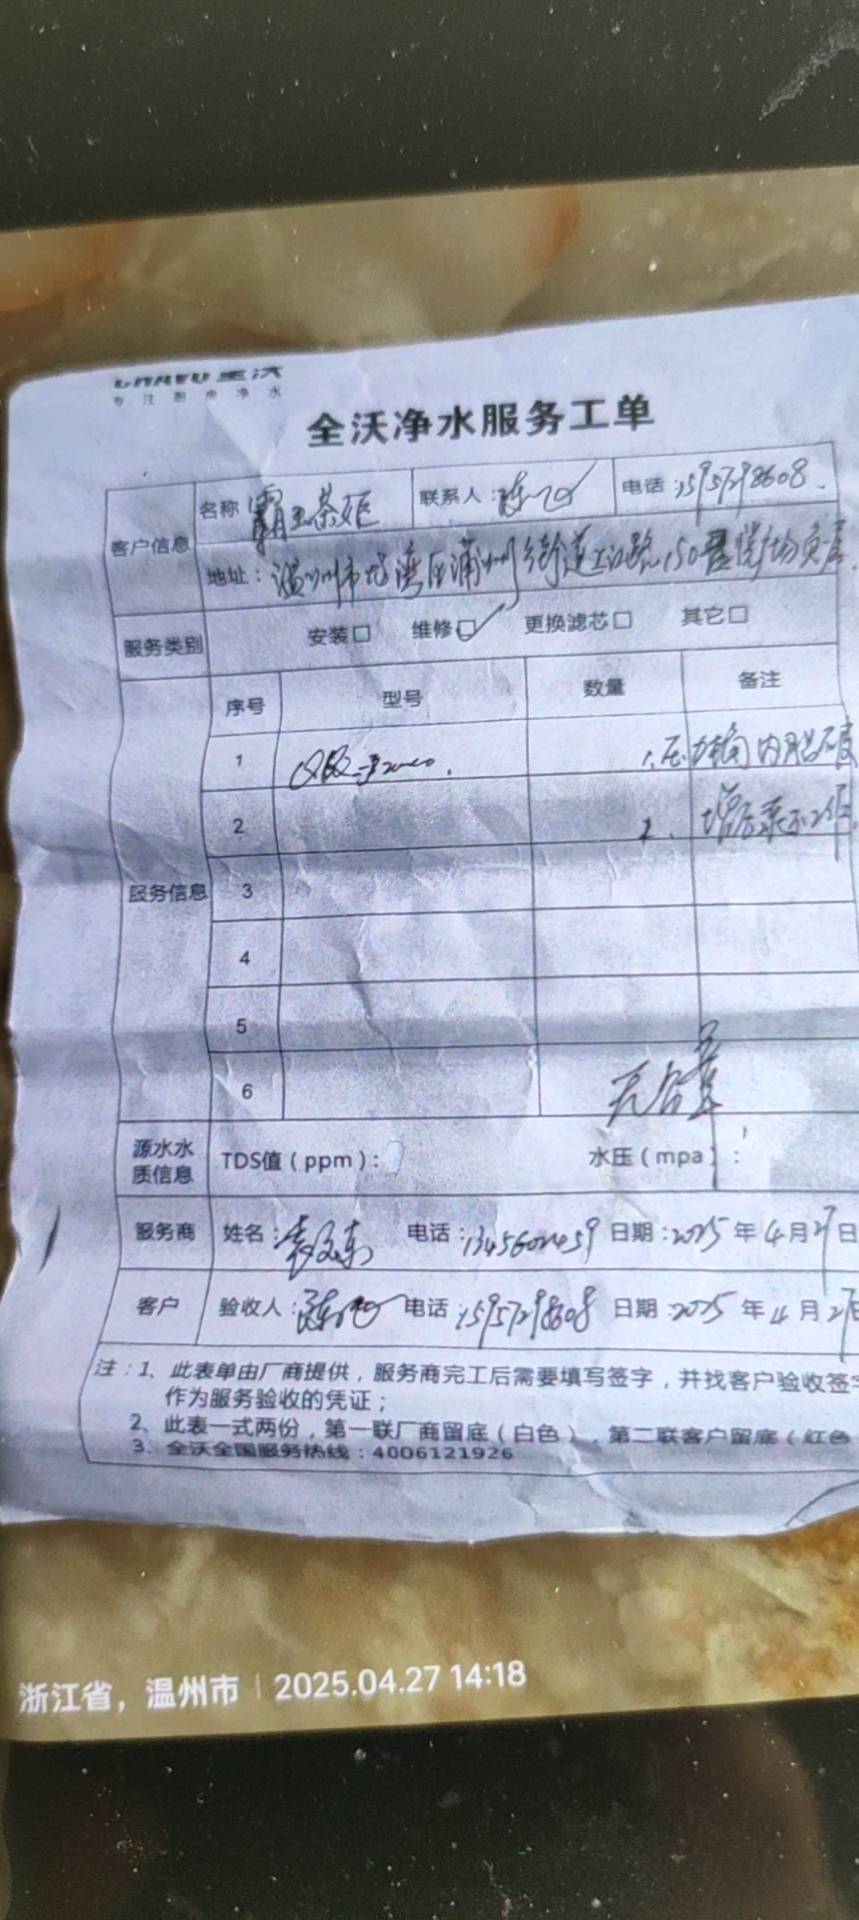 全沃
专注厨房净水
全沃净水服务工单
客户信息 名称 霸王茶姬 联系人: 陈 电话: 15957298608
地址: 温州市龙湾区蒲州街道上江路150号
服务类别 安装□ 维修☑ 更换滤芯□ 其它□
服务信息 序号 型号 数量 备注
1 1. 压力桶内胆破
2 2. 增压泵不工作
3
4
5
6 无合章
源水水质信息 TDS值(ppm): 水压(mpa):
服务商 姓名: 电话: 日期: 2025年4月27日
客户 验收人: 陈 电话: 15957298608 日期: 2025年4月27日
注:1、此表单由厂商提供,服务商完工后需要填写签字,并找客户验收签字
作为服务验收的凭证;
2、此表一式两份,第一联厂商留底(白色),第二联客户留底(红色
3、全沃全国服务热线:4006121926
浙江省,温州市 | 2025.04.27 14:18